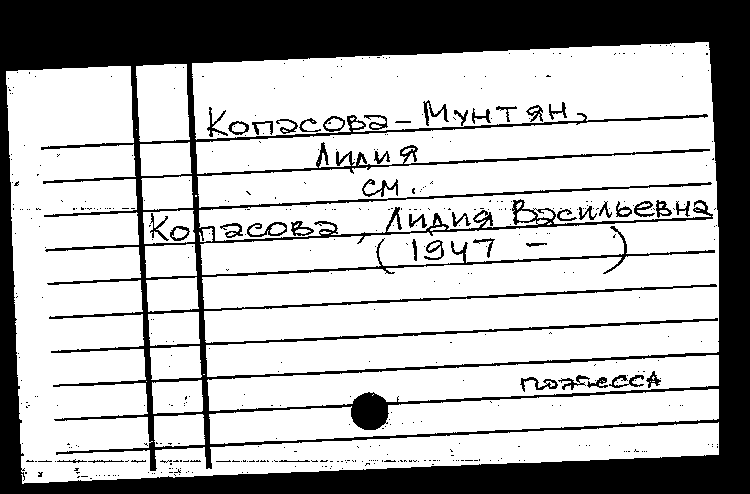 Копасова-Мунтян,
Лидия
см.
Копасова, Лидия Васильевна
(1947 –      )
поэтесса